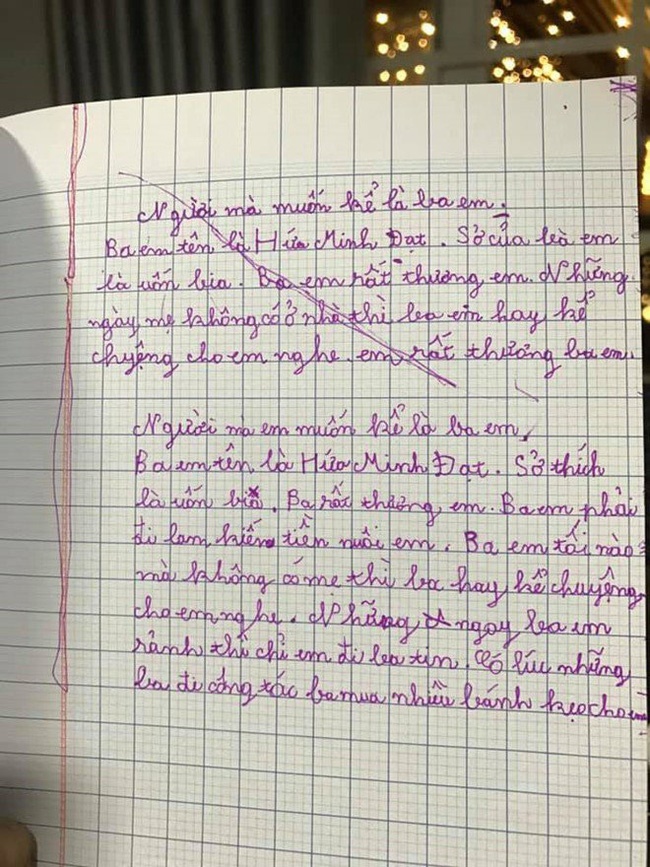 Người mà muốn kể là ba em.
Ba em tên là Hứa Minh Đạt. Sở của là em
là uốn bia. Ba em rất thương em. Những
ngày mẹ không có ở nhà thì ba em hay kể
chuyệng cho em nghe. em rất thương ba em.
Người mà em muốn kể là ba em,
Ba em tên là Hứa Minh Đạt. Sở thích
là uốn bia. Ba rất thương em. Ba em phải
đi lam kiếm tiền nuôi em. Ba em tối nào
mà không có mẹ thì ba hay kể chuyệng
cho em nghe. Những ngay ba em
rảnh thì chỉ em đi
Có lúc những
ba đi công tác ba mua nhiều bánh kẹo cho em